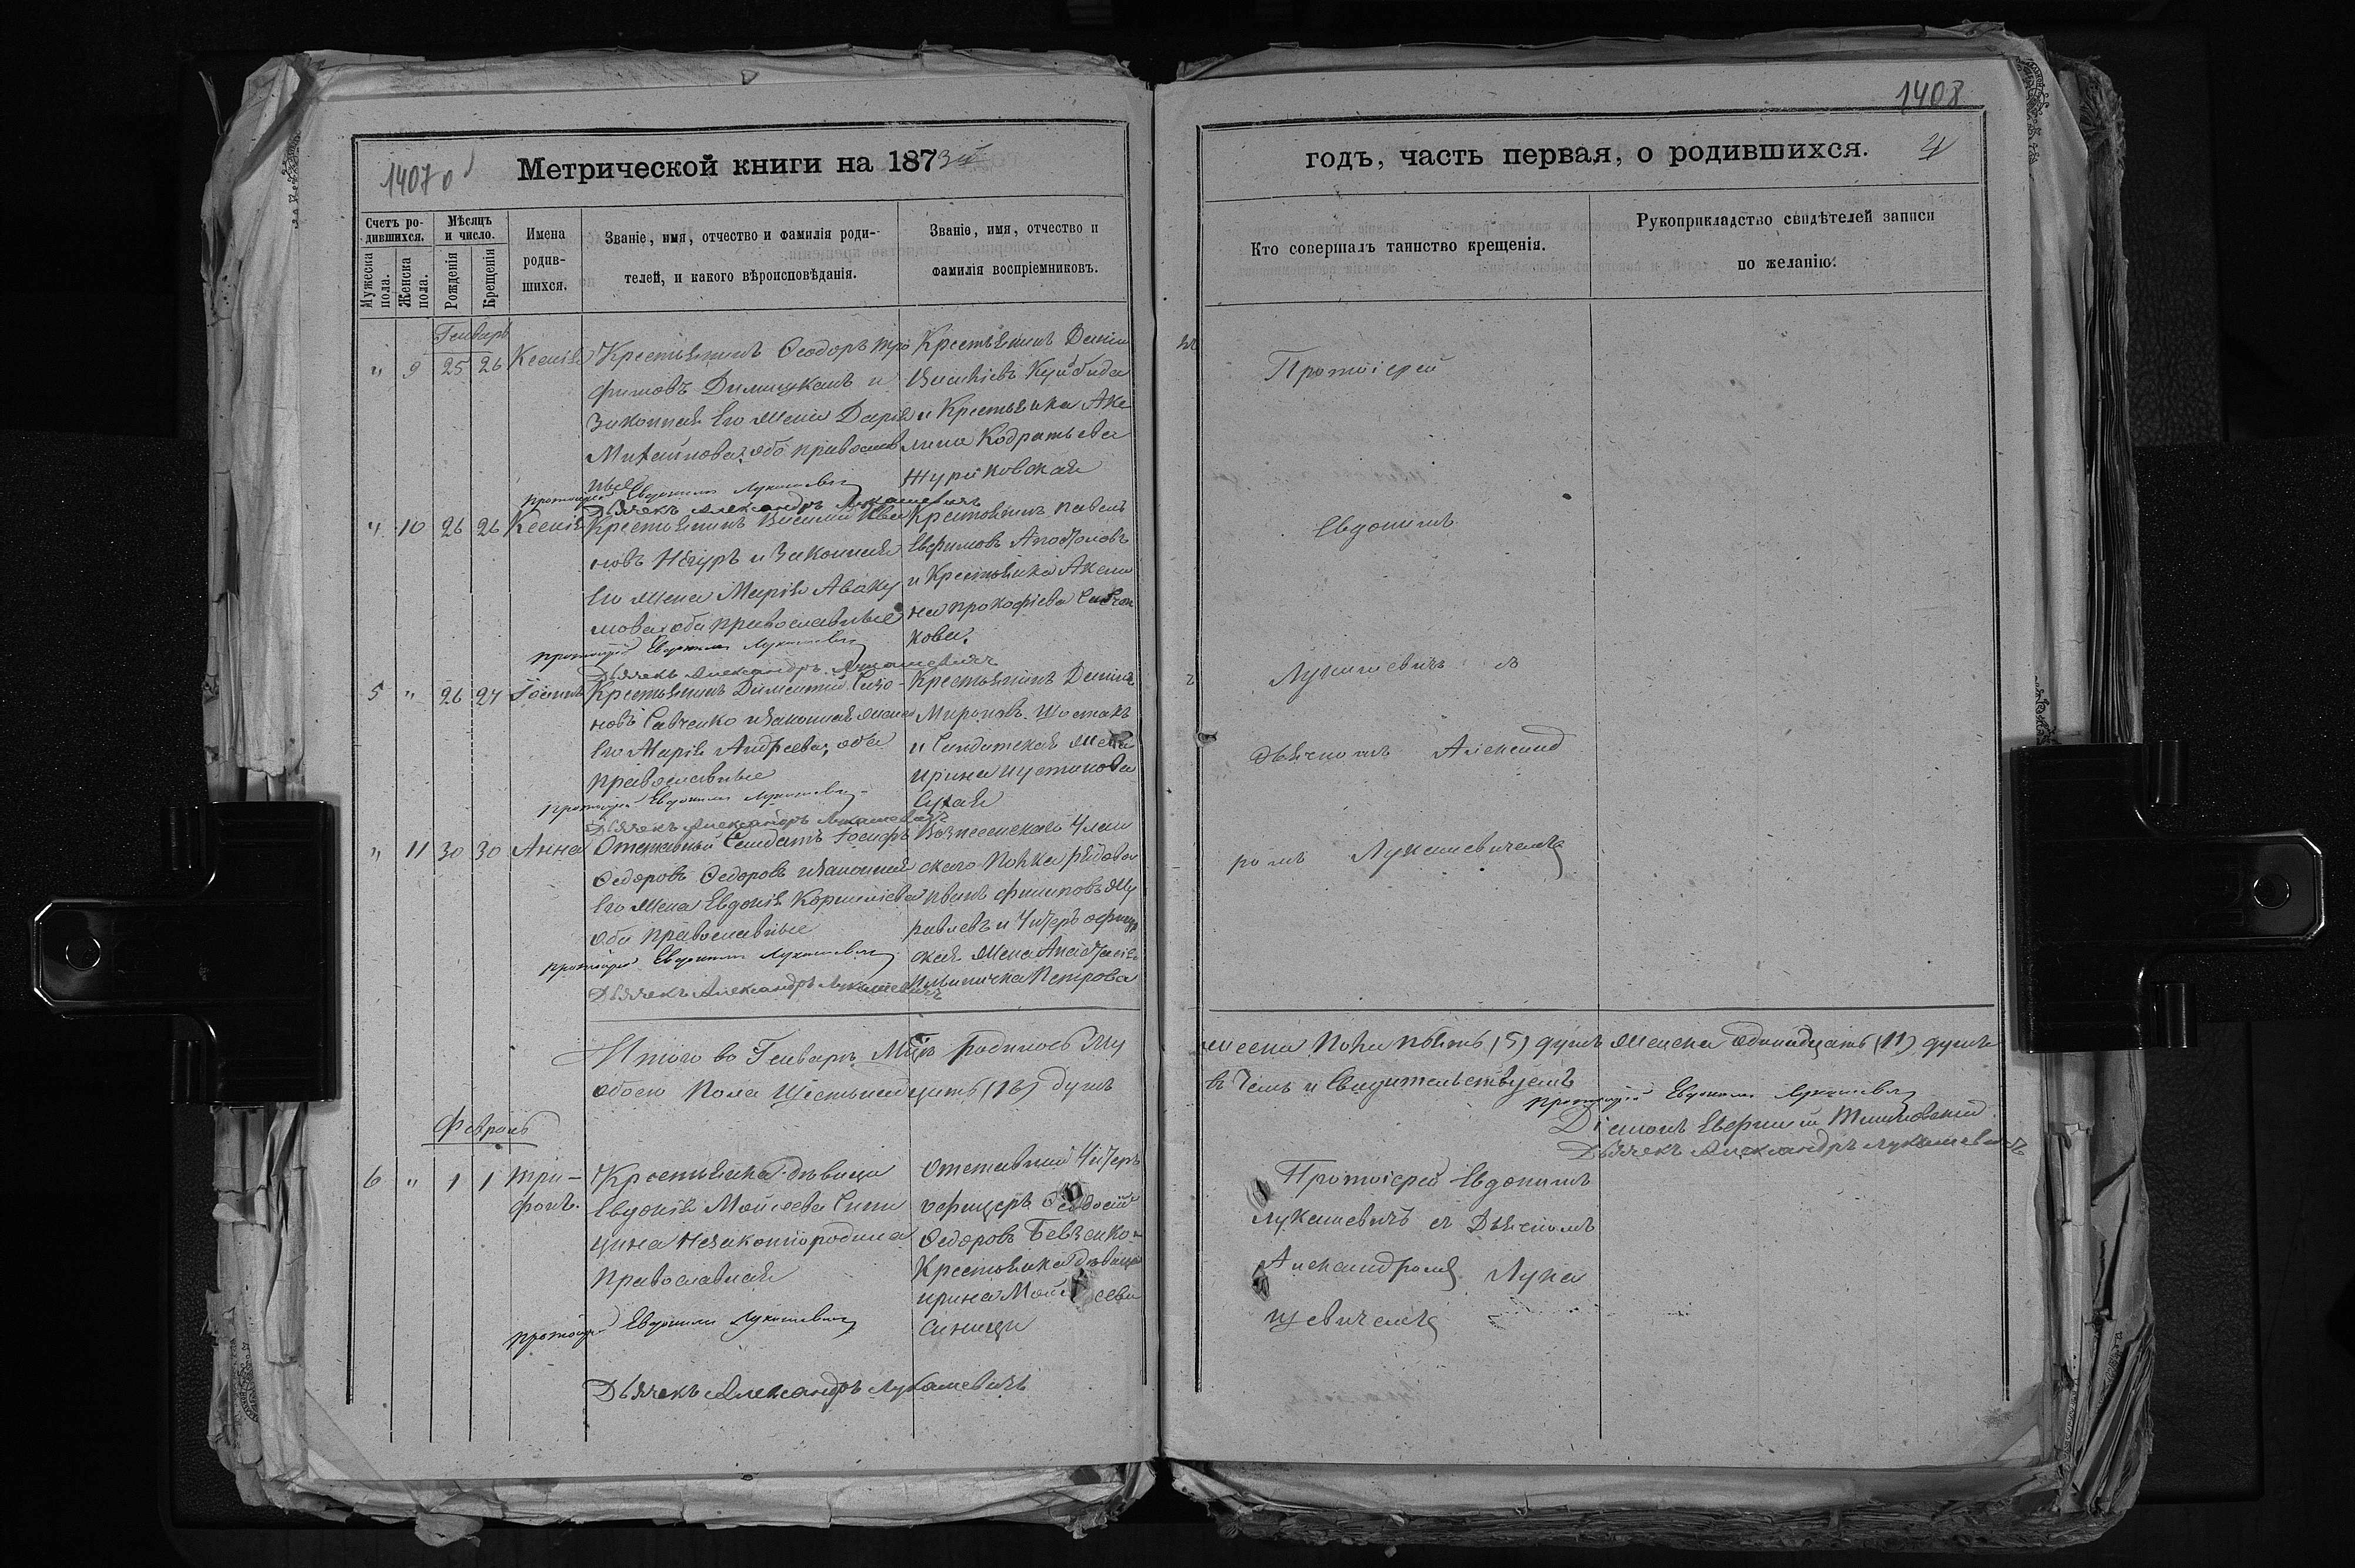 1407 о
Метрической книги на 1873й
Счетъ ро-
дившихся.
Мужеска
пола.
Женска
пола.
Мѣсяцъ
и число.
Рожденія
Крещенія
Имена
родив-
шихся.
Званіе, имя, отчество и фамилія роди-
телей, и какого вѣроисповѣданія.
Званіе, имя, отчество и
фамилія воспріемниковъ.
Генварь
" 9 25 26 Ксенія
Крестьянинъ Ѳеодоръ Тро
фимовъ и
Законная Его жена Дарія
Михайлова, оба православ
ные
Крестьянинъ
и Крестьянка Аке
лина Кодратьева
Протоіерей Евдокимъ Лукашевичъ
Дьячекъ Александръ Лукашевичъ
" 10 26 26 Ксенія
Крестьянинъ Василій Ива
новъ и Законная
Его жена Марія Аваку
мова, оба православные
Крестьянинъ Павелъ
Евфимовъ Апостоловъ
и Крестьянка Акели
на Прокофіева
кова.
Протоіерей Евдокимъ Лукашевичъ
Дьячекъ Александръ Лукашевичъ
5 " 26 27 Іоаннъ
Крестьянинъ Диментій
новъ Савченко и законная жена
Его Марія Андреева, оба
православные
Крестьянинъ
Мироновъ Шостакъ
и Солдатская жена
Ирина Иустинова
Сухая
Протоіерей Евдокимъ Лукашевичъ
Дьячекъ Александръ Лукашевичъ
" 11 30 30 Анна
Отставный Солдатъ Іосифъ
Ѳедоровъ Ѳедоровъ и законная
Его жена Евдокія Корниліева
оба православные
Вознесенскаго Улан
скаго Полка рядовой
Иванъ Филиповъ Жу
равлевъ и Унтеръ офицер
ская жена Анастасія
Петрова
Протоіерей Евдокимъ Лукашевичъ
Дьячекъ Александръ Лукашевичъ
Итого во Генварѣ Мцѣ родилось Му
обоего Пола Шестьнадцать (16) душъ
Февраль
6 " 1 1 Три-
фонъ.
Крестьянка дѣвица
Евдокія Мойсеева Сини
цина Незаконнородила
Православная
Отставный Унтеръ
офицеръ Ѳеодосій
Ѳедоровъ Бевзенко
Крестьянка дѣвица
Ирина Мойсеева
Синица
Протоіерей Евдокимъ Лукашевичъ
Дьячекъ Александръ Лукашевичъ
1408
годъ, часть первая, о родившихся. 4
Кто совершалъ таинство крещенія.
Рукоприкладство свидѣтелей записи
по желанію.
Протоіерей
Евдокимъ
Лукашевичъ съ
дьячкомъ Александ
ромъ Лукашевичемъ
жеска Пола Пять (5) душъ Женска Одинадцать (11) душъ
въ Чемъ и Свидительствуемъ
Протоіерей Евдокимъ Лукашевичъ
Діаконъ Евфимій
Дьячекъ Александръ Лукашевичъ
Протоіерей Евдокимъ
Лукашевичъ съ Дьячкомъ
Александромъ Лука
шевичемъ